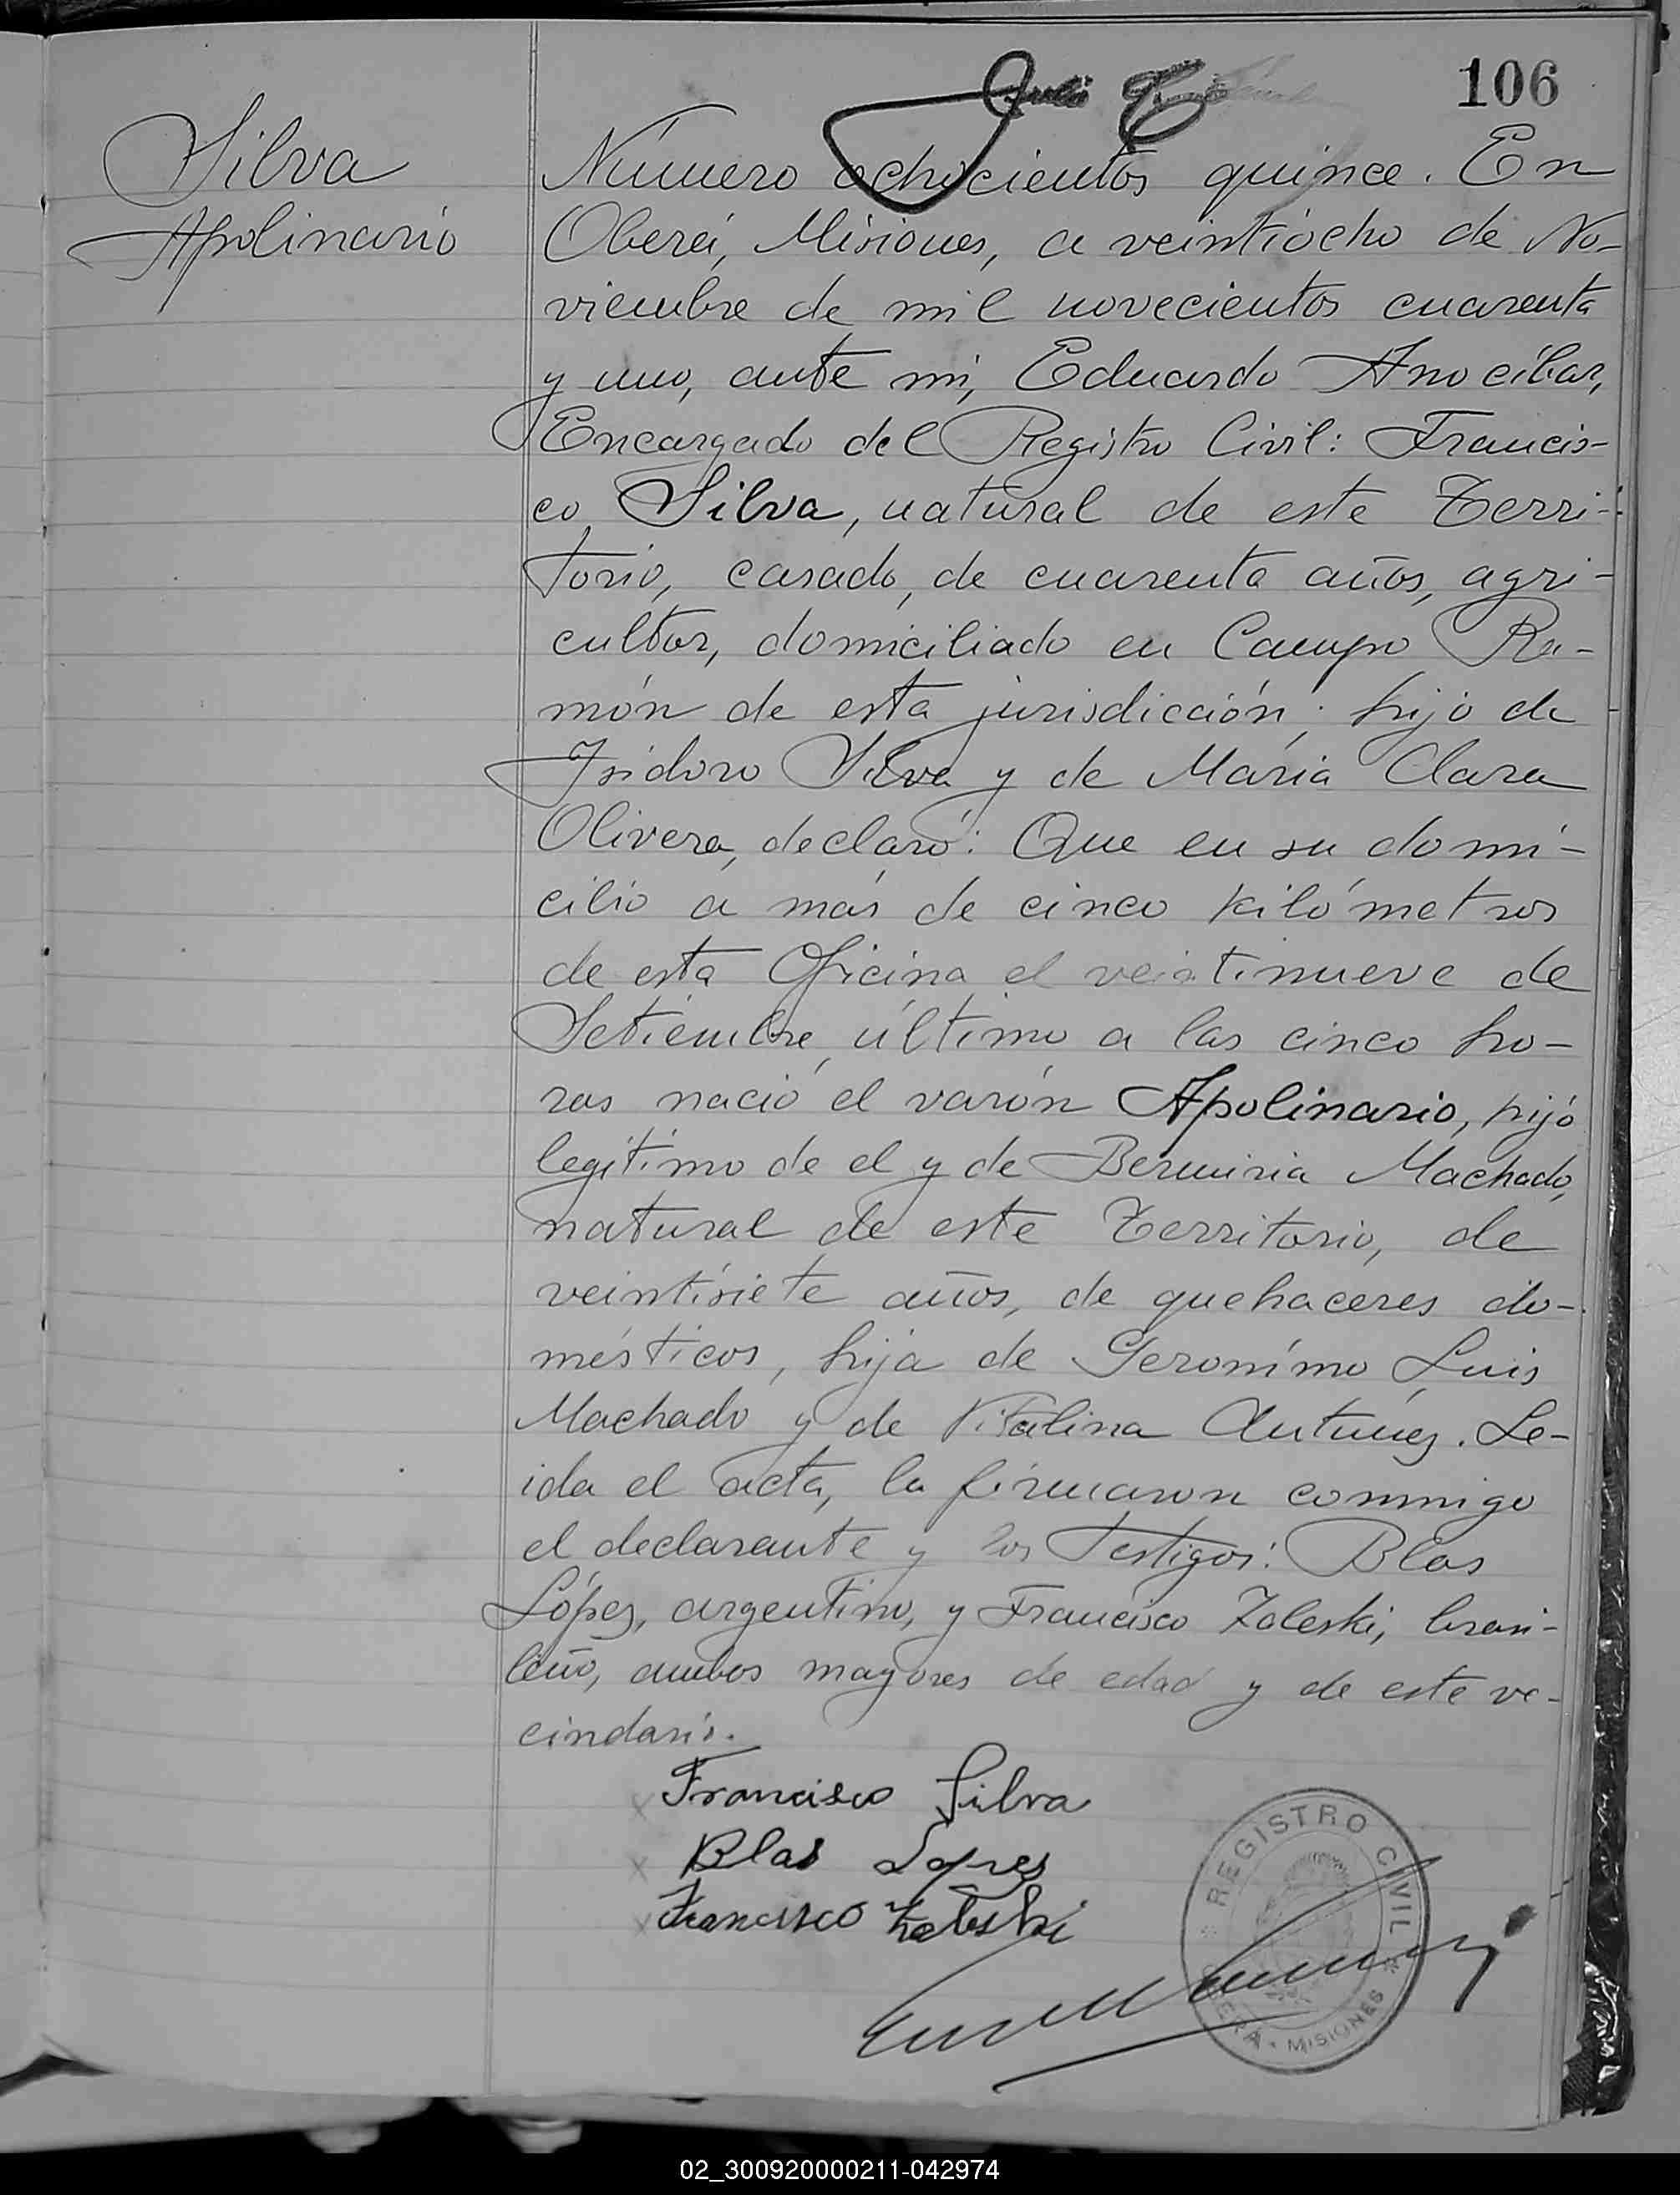 106
Silva
Apolinario
Número ochocientos quince. En
Oberá, Misiones, a veintiocho de No-
viembre de mil novecientos cuarenta
y uno, ante mi, Eduardo Anocibar,
Encargado del Registro Civil: Francis-
co Silva, natural de este Terri-
torio, casado, de cuarenta años, agri-
cultor, domiciliado en Campo Ra-
món de esta jurisdicción; hijo de
Isidoro Silva y de María Clara
Olivera, declaró: Que en su domi-
cilio a más de cinco kilómetros
de esta Oficina el veintinueve de
Setiembre último a las cinco ho-
ras nació el varón Apolinario, hijo
legítimo de el y de Berminia Machado,
natural de este Territorio, de
veintisiete años, de quehaceres do-
mésticos, hija de Geronímo Luis
Machado y de Vitalina Antunez. Le-
ida el acta, la firmaron conmigo
el declarante y los testigos: Blas
López, argentino, y Francisco Zaleski, brasi-
leño, ambos mayores de edad y de este ve-
cindario.
Francisco Silva
Blas Lopres
Francisco Zaleski
REGISTRO CIVIL
OBERÁ • MISIONES
02_300920000211-042974